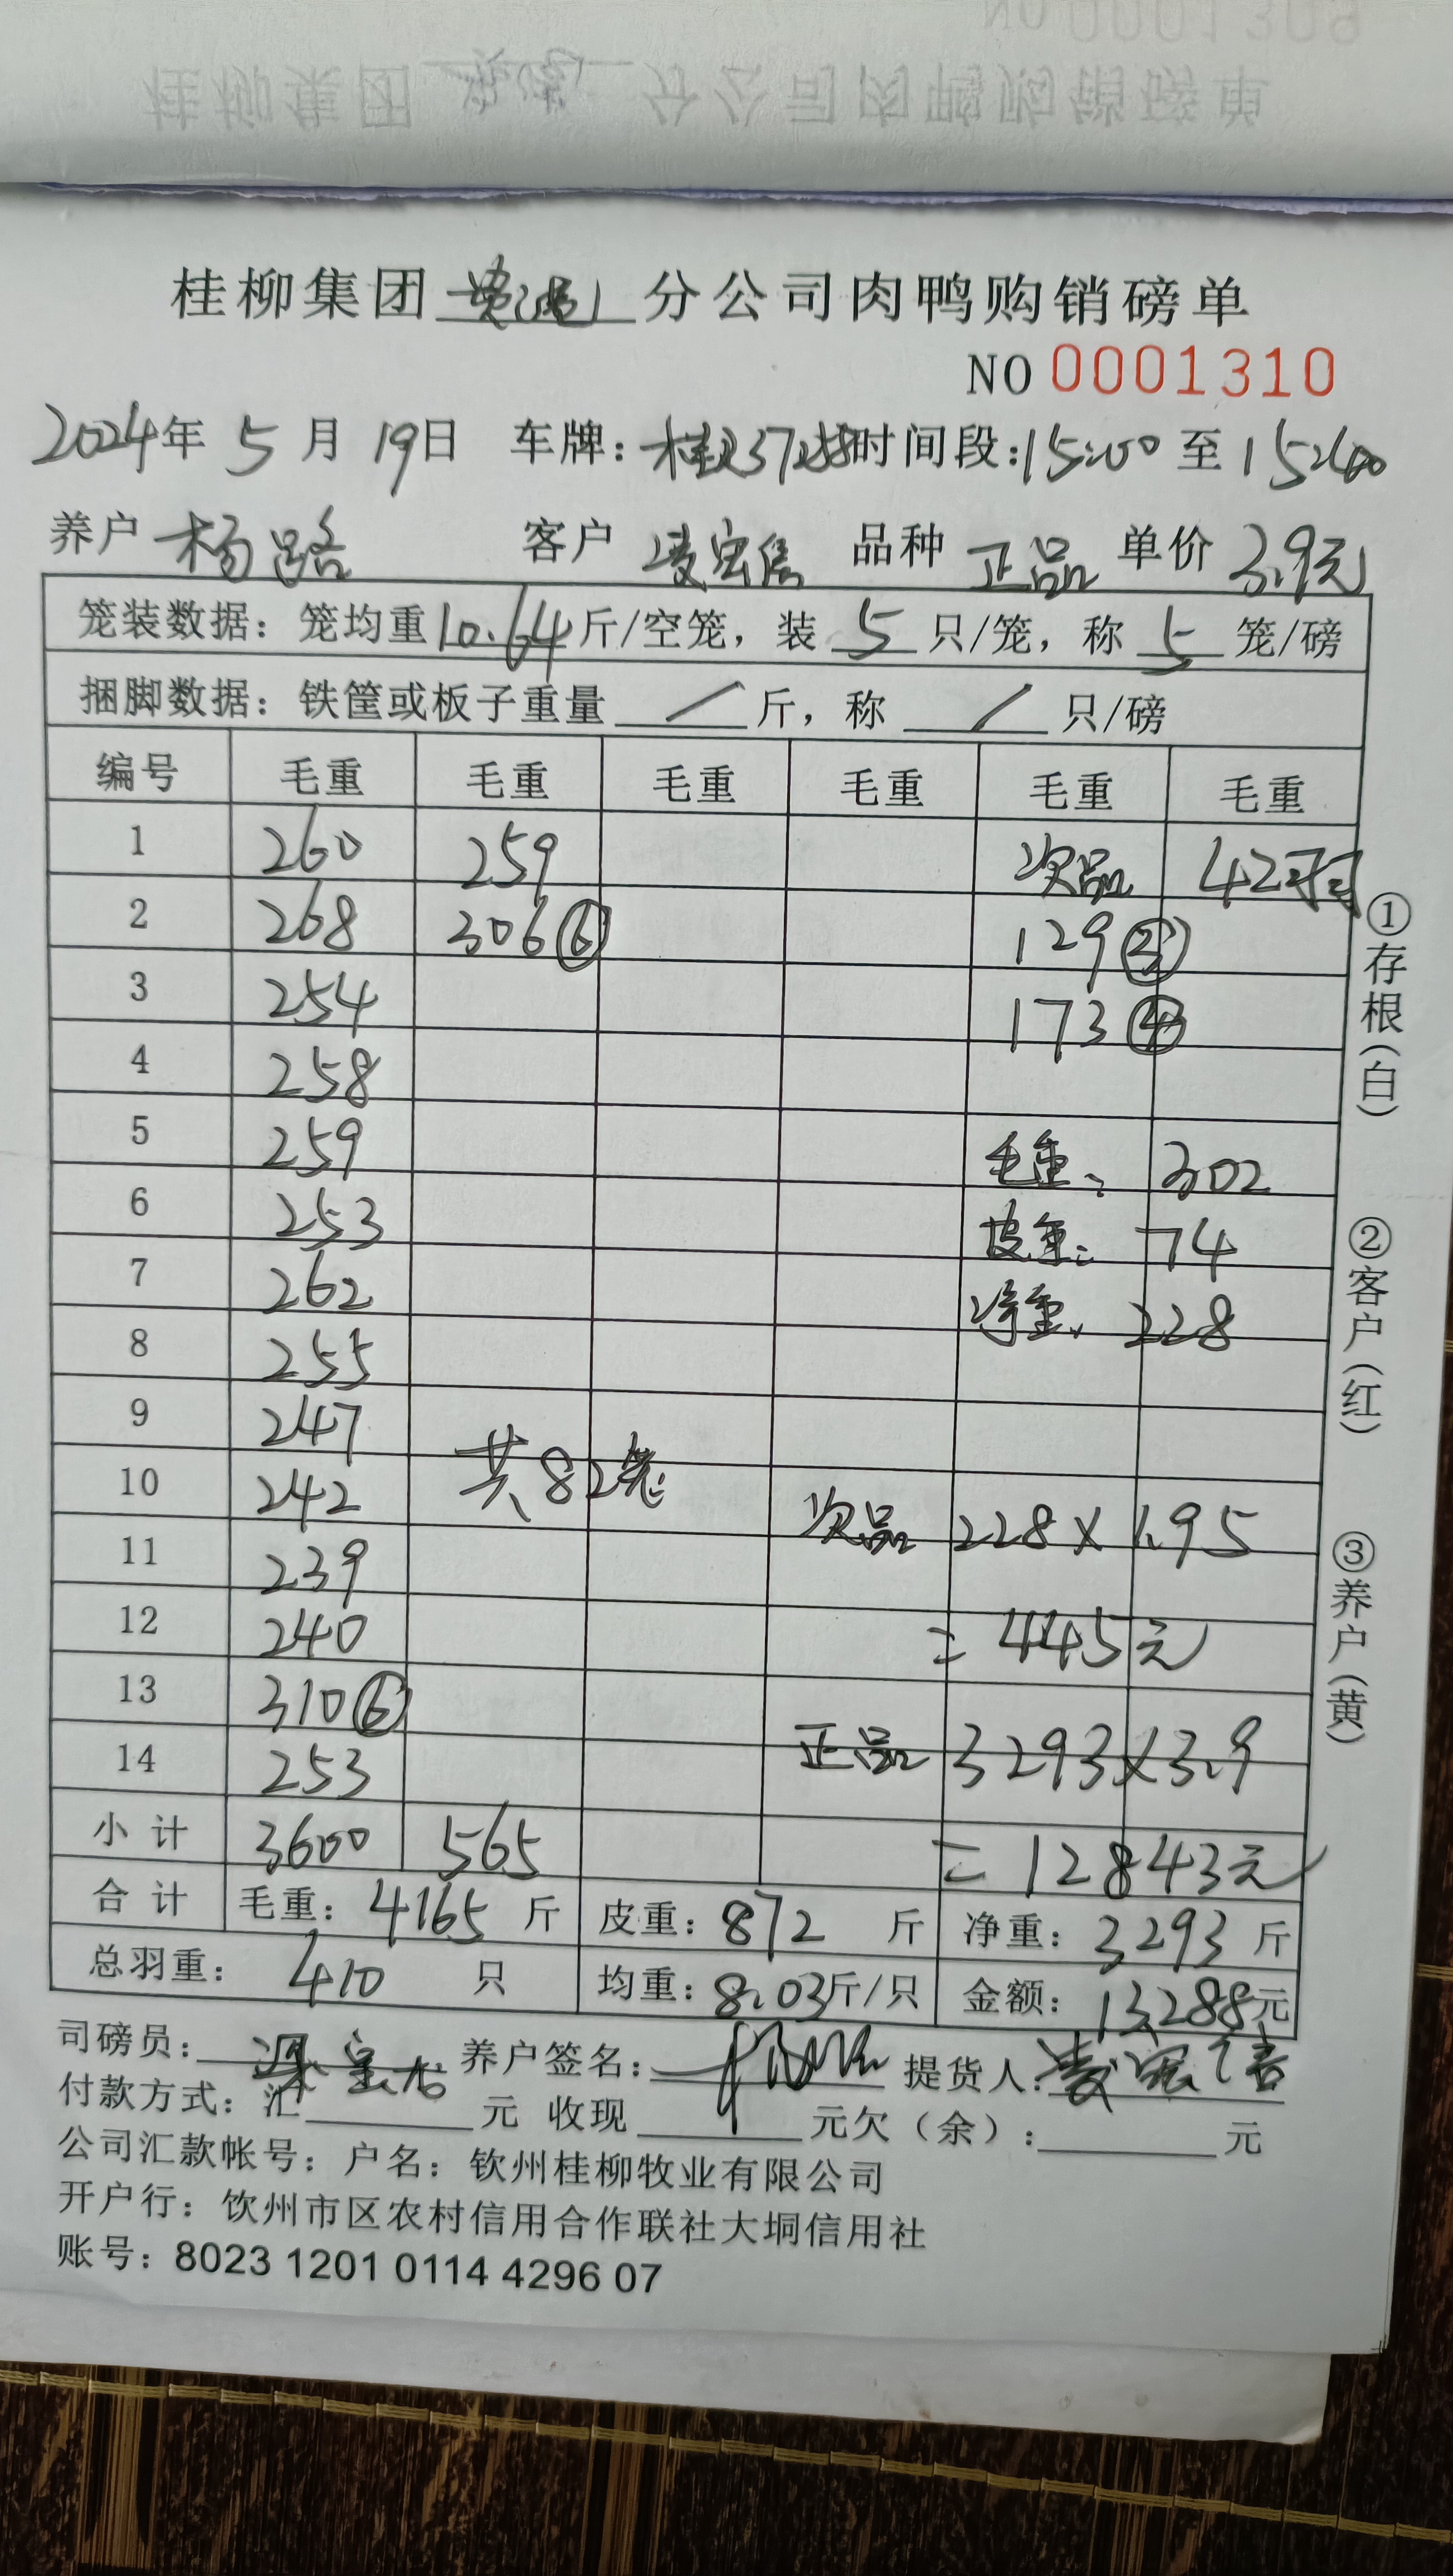 桂柳集团 分公司肉鸭购销磅单
NO 0001310
2024年 5 月 19日 车牌: 时间段:15:00 至 15:40
养户 杨路 客户 凌宏信 品种 正品 单价 3.9元
笼装数据: 笼均重10.64斤/空笼, 装 5 只/笼, 称 5 笼/磅
捆脚数据: 铁筐或板子重量 / 斤, 称 / 只/磅
编号 毛重 毛重 毛重 毛重 毛重 毛重
1 260 259 次品 42羽
2 268 306⑥ 129③
3 254 173④
4 258
5 259 毛重: 302
6 253 皮重: 74
7 262 净重: 228
8 255
9 247
10 242 共82笼 次品 228×1.95
11 239
12 240 =445元
13 310⑥
14 253 正品 3293×3.9
小计 3600 565 =12843元
合计 毛重: 4165 斤 皮重: 872 斤 净重: 3293 斤
总羽重: 410 只 均重: 8.03斤/只 金额: 13288元
司磅员: 养户签名: 提货人: 凌宏信
付款方式: 汇 元 收现 元欠(余): 元
公司汇款帐号: 户名: 钦州桂柳牧业有限公司
开户行: 饮州市区农村信用合作联社大垌信用社
账号: 8023 1201 0114 4296 07
①存根(白)
②客户(红)
③养户(黄)